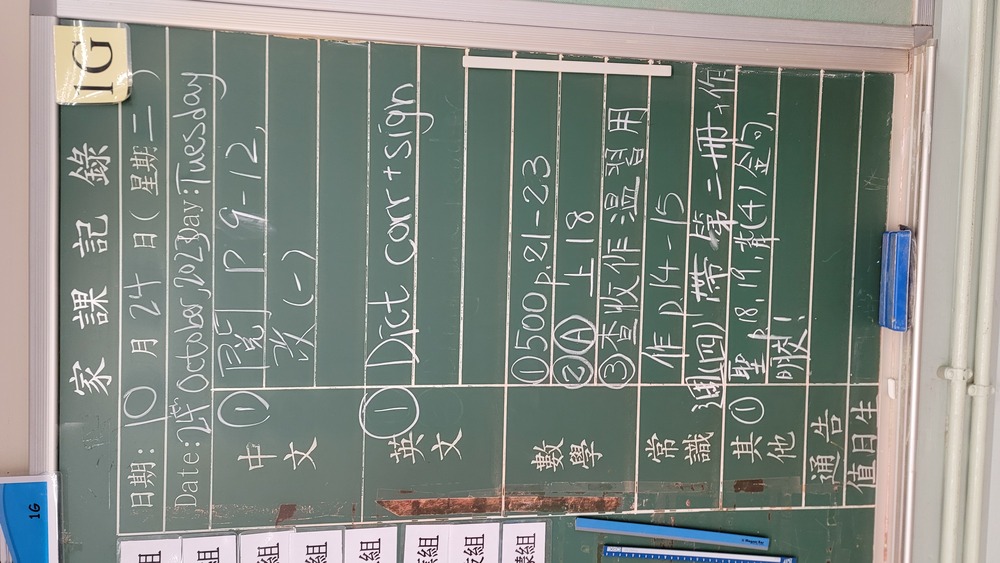 1G
家課記錄
日期: 10月24日(星期二)
Date: 24th October, 2023 Day: Tuesday
中文 ① 閱 P. 9-12,
改(一)
英文 ① Dict corr + sign
數學 ① 500 p.21-23
② Ⓐ 上 18
③ 查收作溫習用
常識 作 p.14-15
週(四) 帶 第二冊+作
其他 ① 聖 p.18, 19, 背(4)金句,
明交!
通告
值日生
1G
組
組
組
組
組
組
組
組